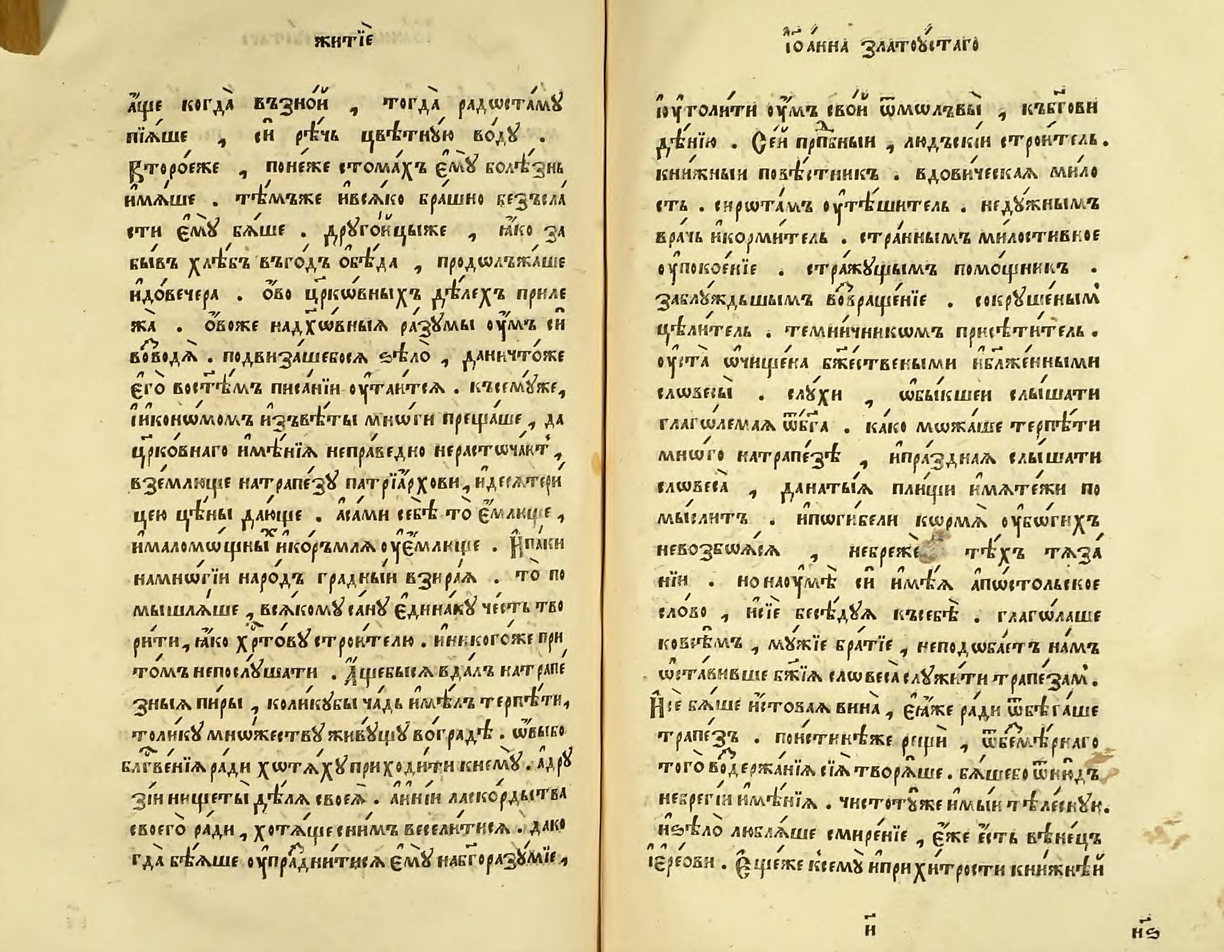 житїѐ
а҆́ще когда̀ възно́й , тогда̀ радостámꙋ
пїѧ́ше , сѝ рѣ́чь цвѣ́тнꙋю во́дꙋ .
Второ́еже , поне́же стома́хъ є҆мꙋ̀ болѣ́знь
и҆мѧ́ше . тѣ́мъже и҆всѧ́ко бра́шно безъсла́
сти є҆мꙋ̀ бѧ́ше . дрꙋго́ицыже , ꙗ҆́ко за
бы́въ хлѣ́бъ въго́дъ о҆бѣ́да , продѡлъжа́ше
и҆довече́ра . ѻ҆́во цр҃ко́вныхъ дѣ́лехъ приле
жа̀ . ѻ҆́воже надх҃ѡ́вныѧ ра́зꙋмы ᲂу҆́мъ сѝ
во́водѧ̀ . подвиза́шебосѧ ѕѣлѡ̀ , даничто́же
є҆гѡ̀ востѣ́мъ писа́нїи ᲂутаи́тсѧ . късемꙋ́же,
і҆ико́нѡмомъ и҆звѣ́ты мнѡ́ги преща́ше , да
цр҃ко́внаго и҆мѣ́нїѧ непра́ведно нерасточа́ют̾ ,
взе́млюще натрапе́зꙋ патрїа́рхови , и҆десѧтери
це́ю цѣ́ны даю́ще . а҆са́ми себѣ̀ то̀ є҆́млюще ,
и҆маломо́щныⷯ и҆ко́ръмлѧ ᲂу҆є҆́млюще . И҆па́ки
намно́гїи наро́дъ гра́дныи взира́ѧ . то̀ по
мышлѧ́ше , всѧ́комꙋ са́нꙋ є҆дина́кꙋ че́сть тво
ри́ти , ꙗ҆́ко хрⷭ҇то́вꙋ строи́телю . и҆никого́же при
то́мъ непослꙋ́шати . А҆́щебысѧ вда́лъ натрапе́
зныѧ пи́ры , коли́кꙋбы ча́дь и҆мѣ́лъ терпѣ́ти,
толи́кꙋ мнѡ́жествꙋ живꙋ́щꙋ вогра́дѣ . ѡ҆выбо
блⷭ҇гве́нїѧ ра́ди хотѧ́хꙋ приходи́ти кнемꙋ̀ . а҆дрꙋ
зїи нищеты̀ дѣ́лѧ своеѧ̀ . а҆и҆нїи ласкордьства
своегѡ̀ ра́ди , хотѧ́ще сни́мъ весели́тисѧ . дако
гда̀ бѣ́ѧше ᲂу҆пра́днитисѧ є҆мꙋ̀ набг҃оразꙋмїе ,
і҆ѡа́нна златоꙋ́стагѡ
і҆ᲂу҆толи́ти ᲂу҆́мъ сво́й ѿмѡлвы̀ , къбг҃ови
дѣ́нїю . Се́й прⷣпⷣбныи , лю́дьскїи строи́тель .
кни́жныи повѣ́стникъ . вдови́ческаѧ ми́ло
сть . сирѡта́мъ ᲂу҆тѣ́шитель . недꙋ́жнымъ
вра́чь и҆корми́тель . стра́ннымъ ми́лостивное
ᲂу҆покое́нїе . стра́жꙋщымъ помо́щникъ .
заблꙋ́ждьшымъ возвраще́нїе . сокрꙋше́ным̾
цѣли́тель . темни́чникѡмъ присѣти́тель .
ᲂу҆ста̀ ѡ҆чище́на бж҃е́ствеными и҆блаже́нными
словесы̀ . слꙋ́хи , ѡ҆бы́кшеи слы́шати
глагѡ́лемаѧ ѿбг҃а . ка́ко мѡжа́ше терпѣ́ти
мнѡ́го натрапе́зѣ , и҆пра́зднаѧ слы́шати
словеса̀ , даната́ѧ пли́щи и҆мѧте́жи по
мы́слитъ . и҆поги́бели кѡрмѧ̀ ᲂу҆бѡ́гихъ
невозбоѧ́сѧ , небреже́ тѣ́хъ тѧза́
нїи . нонаᲂу҆мѣ̀ сѝ и҆мѣ́ѧ а҆посто́льское
сло́во , и҆сїѐ бесѣ́дꙋѧ късебѣ̀ . глаго́лаше
ковсѣ́мъ , мꙋ́жїе бра́тїе , неподѡба́етъ на́мъ
ѡ҆ста́вивше бж҃їѧ словеса̀ слꙋжи́ти трапе́зам̾ .
И҆сѐ бѧ́ше и҆́стоваѧ вина̀ , є҆ѧ́же ра́ди ѿбѣга́ше
трапе́зъ . пои́стинѣже рещѝ , ѿбезмѣ́рнаго
того̀ во́держа́нїѧ сїѧ̀ творѧ́ше . бѧ́шебо ѿню́дъ
небреги́и и҆мѣ́нїѧ . чистотꙋ́же и҆мы́и тѣле́снꙋю.
и҆ѕѣлѡ̀ люблѧ́ше смире́нїе , є҆́же є҆́сть вѣне́цъ
і҆ере́ови . Є҆ще́же ксемꙋ̀ и҆прихи́трости кни́жнѣй
н҃
н҃ѕ